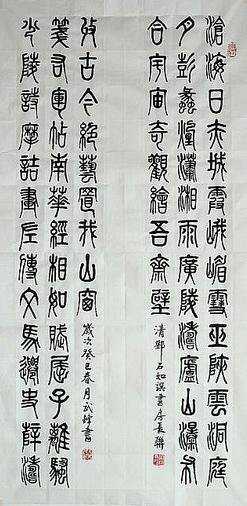 滄海日赤城霞峨嵋雪巫峽雲洞庭
月彭蠡煙瀟湘雨廣陵濤廬山瀑布
合宇宙奇觀繪吾齋壁
清鄧石如書房長聯
少陵詩摩詰畫左傳文馬遷史薛濤
箋右軍帖南華經相如賦屈子離騷
收古今絕藝置我山窗
歲次癸巳春月武書